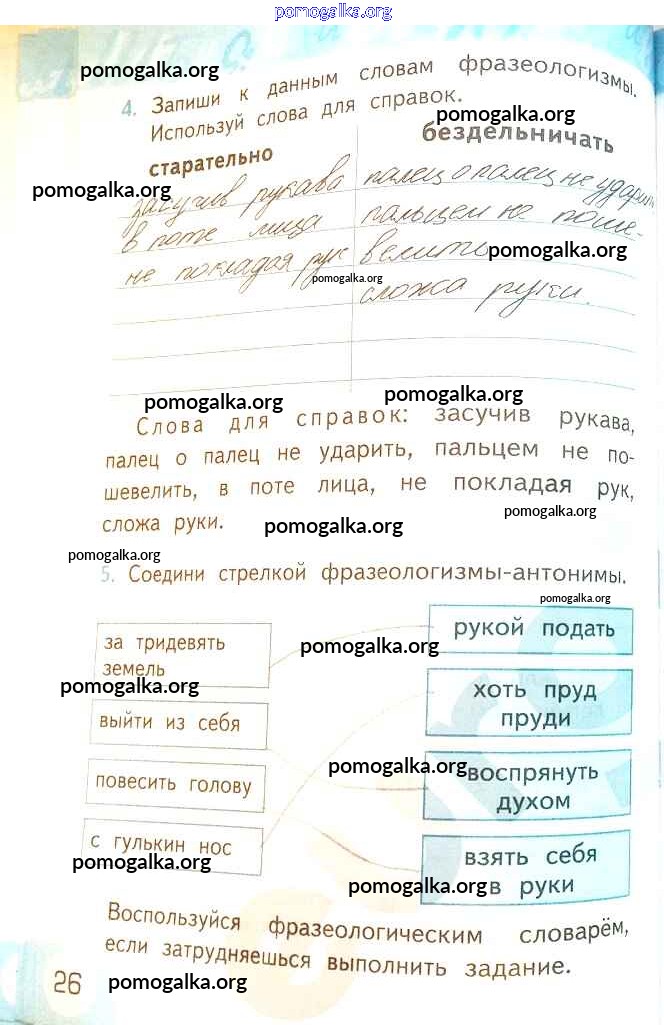 pomogalka.org
pomogalka.org
4. Запиши к данным словам фразеологизмы.
Используй слова для справок.
pomogalka.org
старательно бездельничать
pomogalka.org
засучив рукава палец о палец не ударить
в поте лица пальцем не поше-
не покладая рук велить
pomogalka.org
pomogalka.org
сложа руки.
pomogalka.org
pomogalka.org
Слова для справок: засучив рукава,
палец о палец не ударить, пальцем не по-
шевелить, в поте лица, не покладая рук,
pomogalka.org
сложа руки.
pomogalka.org
pomogalka.org
5. Соедини стрелкой фразеологизмы-антонимы.
pomogalka.org
за тридевять
земель
рукой подать
pomogalka.org
pomogalka.org
выйти из себя
хоть пруд
пруди
pomogalka.org
повесить голову
воспрянуть
духом
с гулькин нос
pomogalka.org
взять себя
в руки
pomogalka.org
Воспользуйся фразеологическим словарём,
если затрудняешься выполнить задание.
26
pomogalka.org